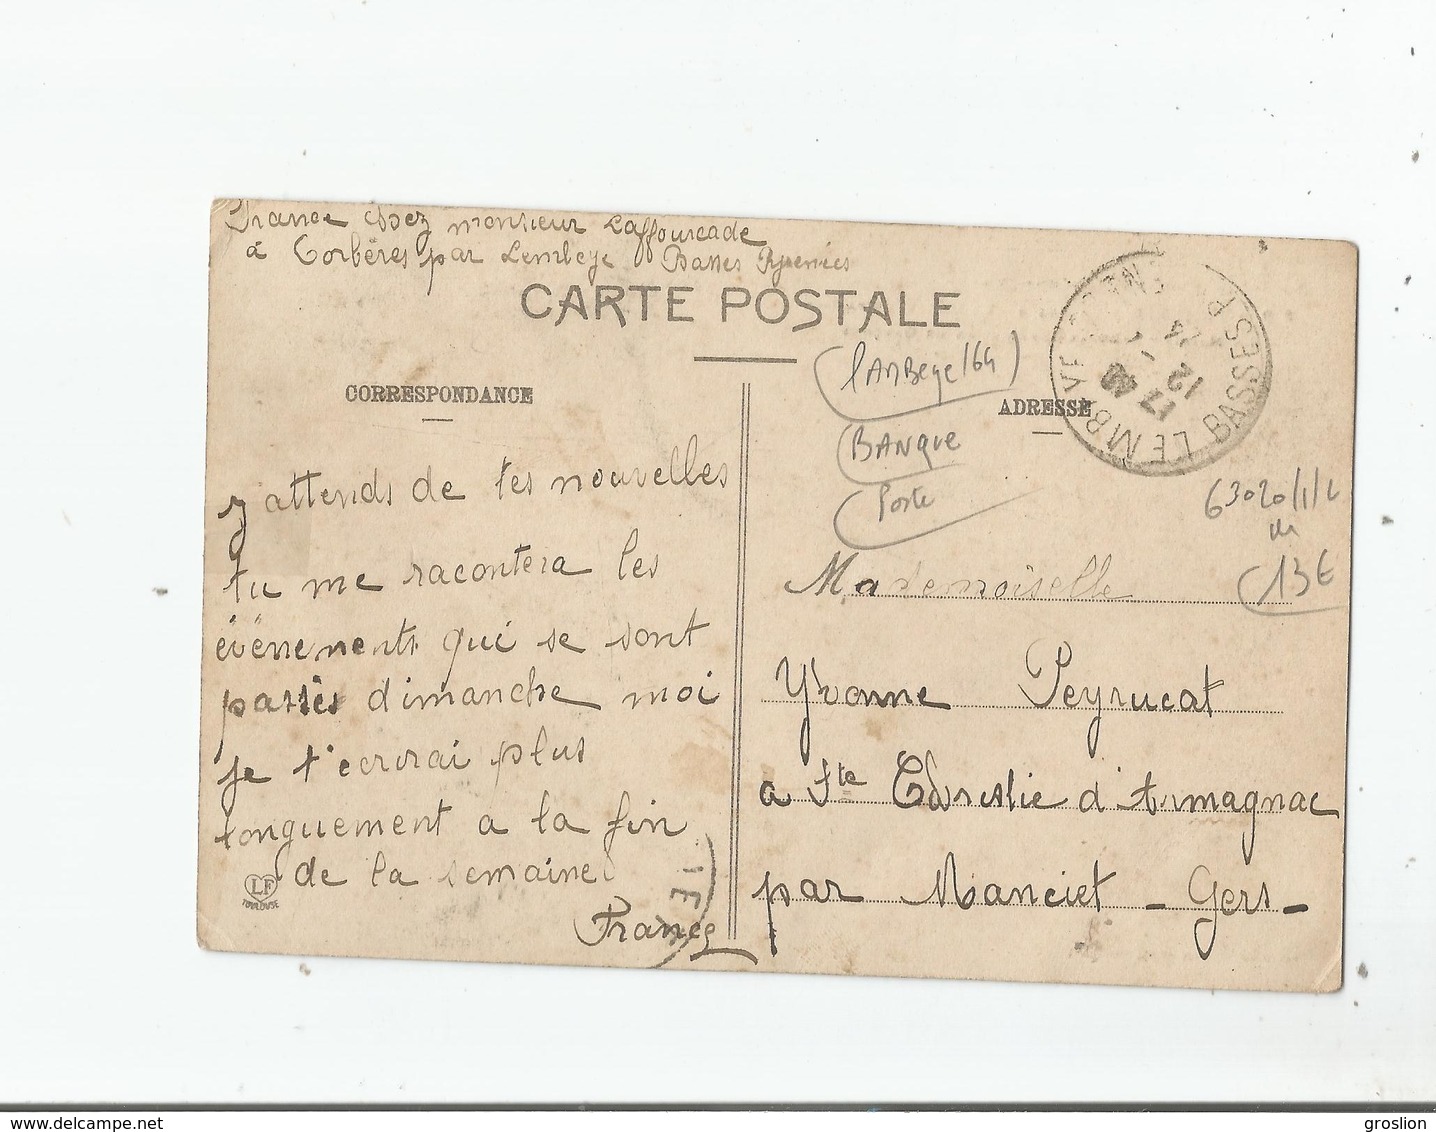 France chez monsieur Laffourcade
à Corbères par Lembeye Basses Pyrenées
CARTE POSTALE
CORRESPONDANCE
ADRESSE
LEMBEYE BASSES PYRENEES
17
12 - 1
14
(LAMBeye/64)
BANQUE
Poste
63020/1/2
13€
J attends de tes nouvelles
tu me racontera les
évènements qui se sont
passés dimanche moi
je t'ecrirai plus
longuement a la fin
de la semaine
France
LF
TOULOUSE
Mademoiselle
Yvonne Peyrucat
a Ste Christie d'Armagnac
par Manciet - Gers -
delcampe.net
groslion